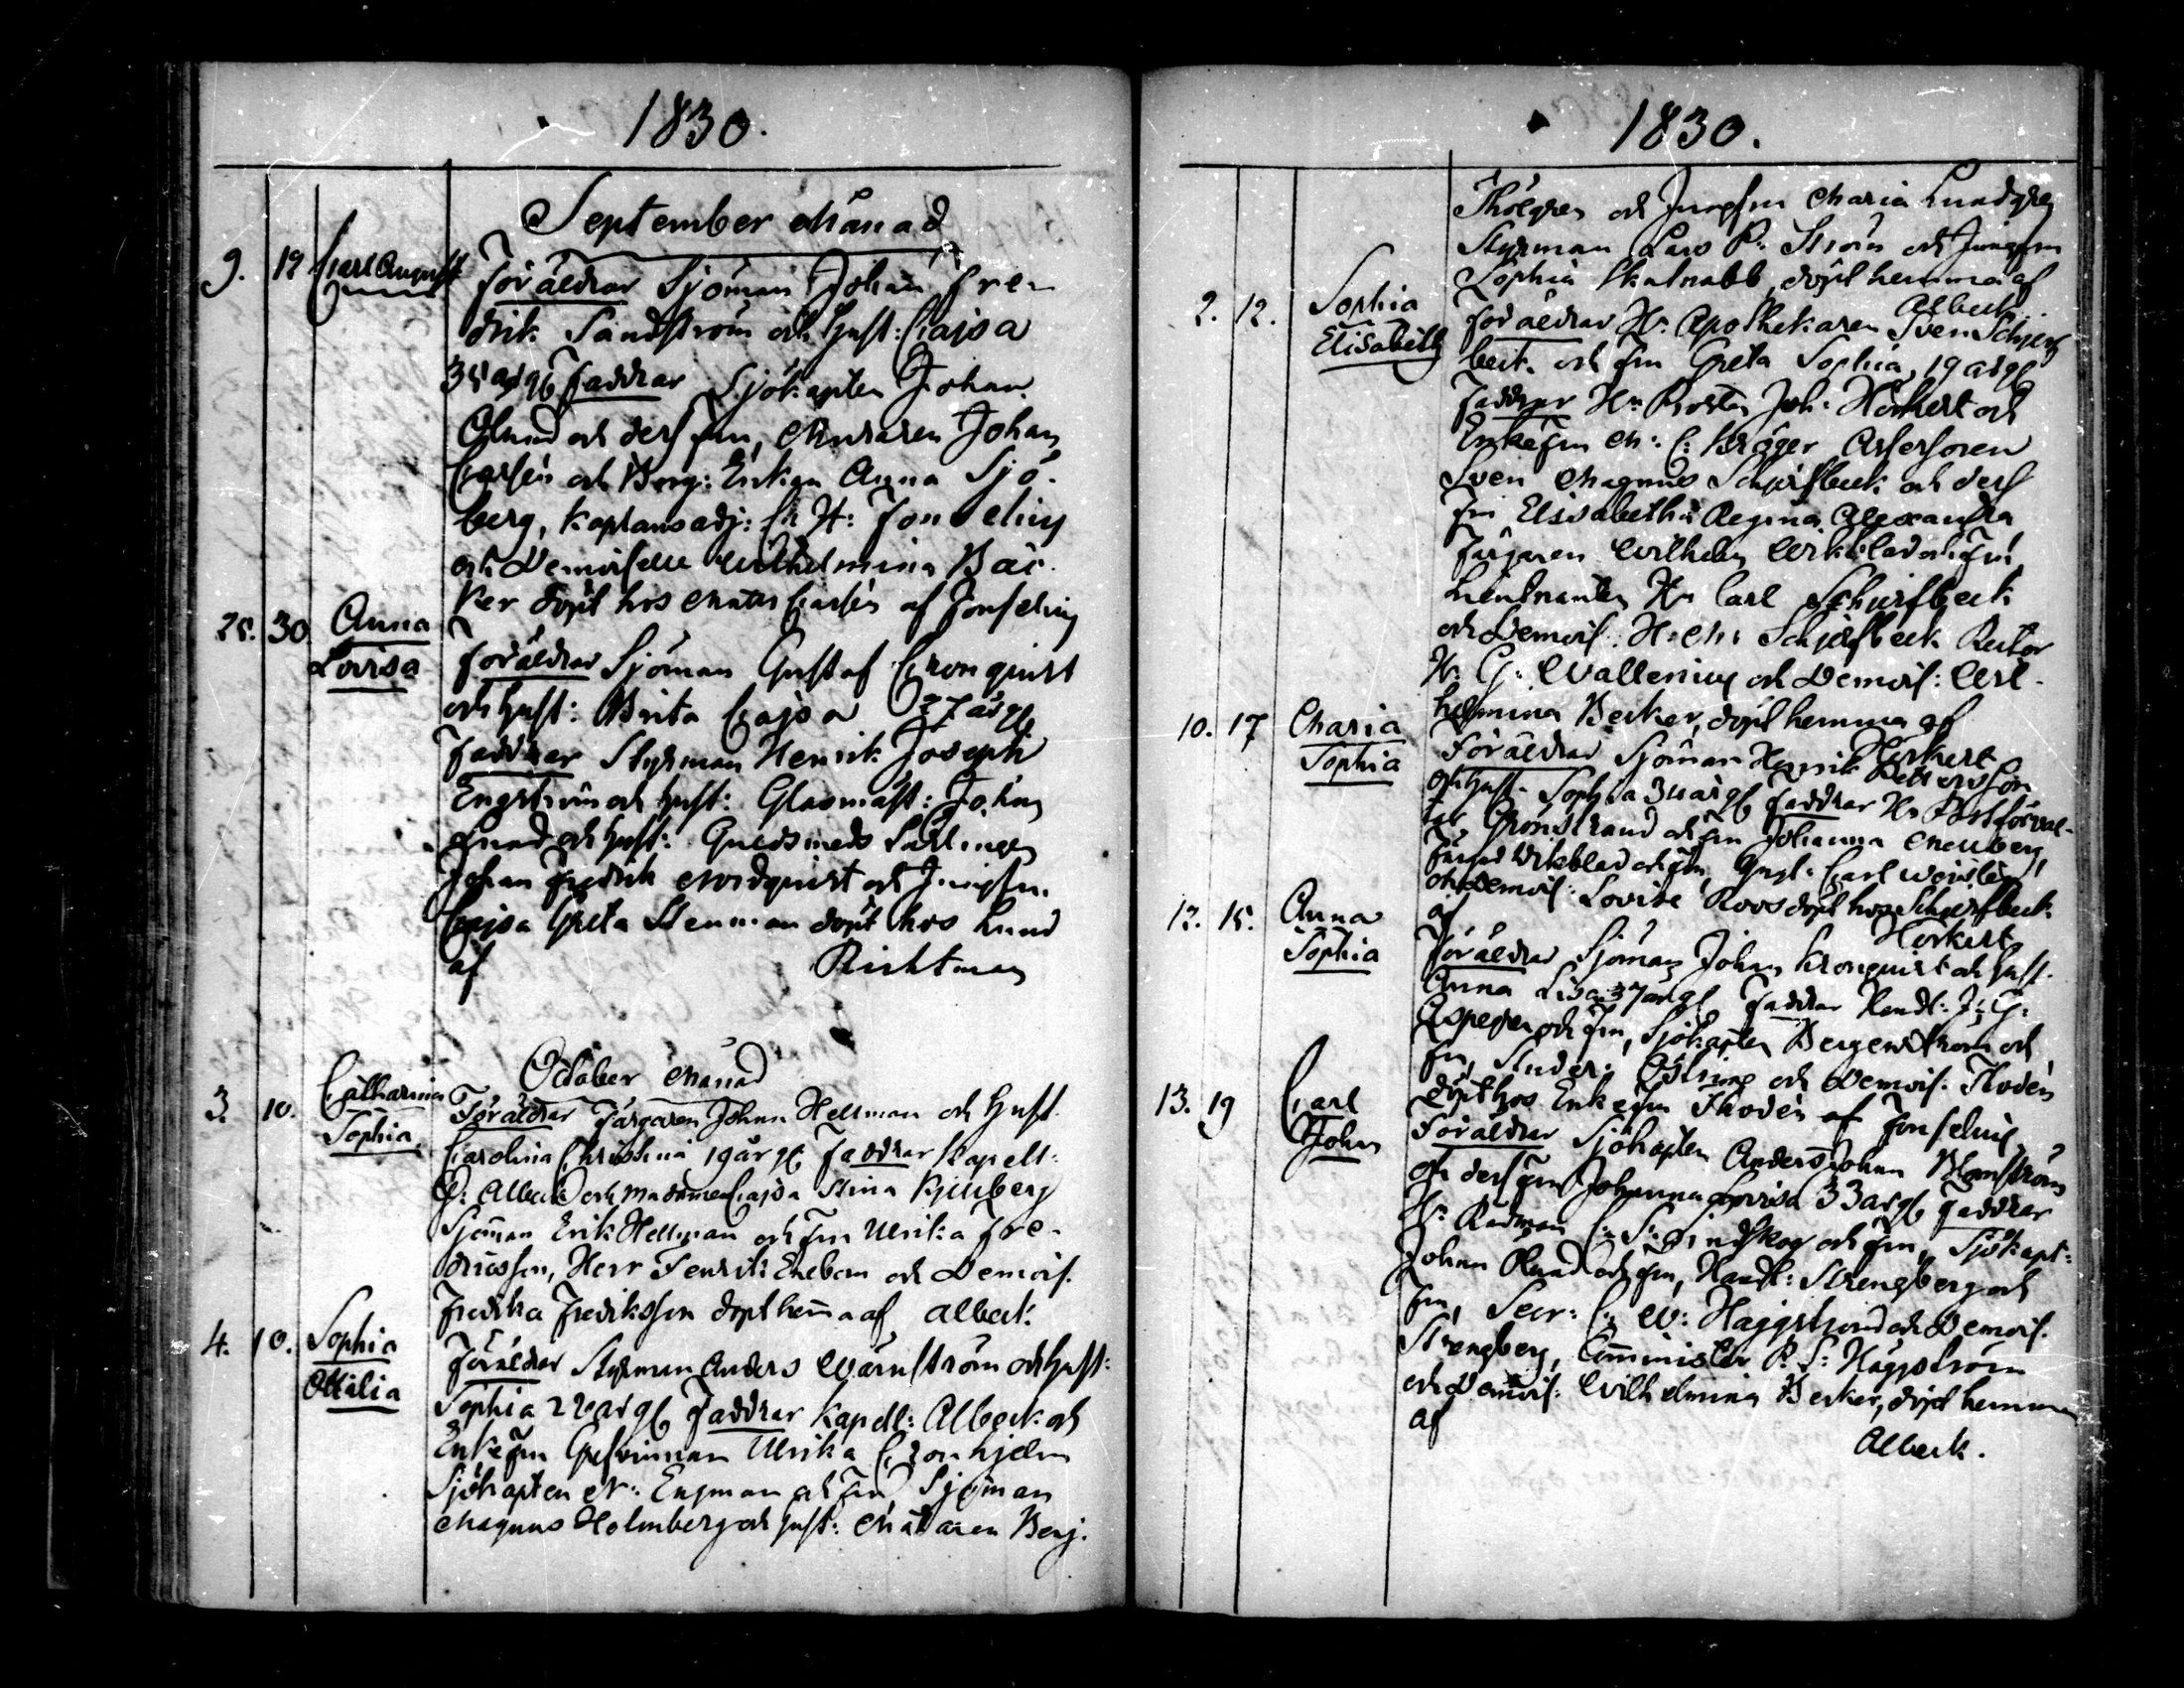 1830.
September Månad
9. 12 Carl August Föräldrar Sjöman Johan Fre-
drik Sandström och Hust: Cajsa
35 arg Faddrar Sjökapten Johan
Ölund och dess Fru, Muraren Johan
Carlén och Borg: Enkan Anna Sjö-
berg, Kaplansadj: C H: Fonselius
och Demoiselle Wilhelmina Bäc-
ker döpt hos Carlén af Fonselius
25. 30 Anna Lovisa
Föräldrar Sjöman Gustaf Cronquist
och Hust: Brita Cajsa 27 arg
Faddrar Styrman Henrik Joseph
Engström och Hust: Glasmäst: Johan
Lund och Hust: Guldsmeds Lärlingen
Johan Fredrik Nordquist och Jungfru
Cajsa Greta Stenman döpt hos Lund
af Richtman
October Månad
3. 10. Catharina Sophia
Föräldrar Färgaren Johan Hellman och Hust
Carolina Christina 19 årg Faddrar Kapell:
Albeck och Madame Cajsa Stina
Sjöman Erik Hellman och Fru Ulrika Fre-
dricsson, Herr Fendrik Enebom och Demois.
Fredrika Fredriksson döpt hema af Albeck
4. 10. Sophia Ottilia
Föräldrar Styrman Anders Wärnström och Hust:
Sophia 22 arg Faddrar Kapell: Albeck och
Enkefru Grefvinnan Ulrika Cronhjelm
Sjökapten N: Engman och Fru, Sjöman
Magnus Holmberg och Hust: Målaren Benj.
1830.
och Jungfru Maria Lundgren
Styrman Lars P: Ström och Jungfru
Sophia Skatnabb, döpt hemma af
Albeck.
2. 12. Sophia Elisabeth
Föräldrar Hr Apothekaren Sven Schjerf-
beck och Fru Greta Sophia, 19 årg
Faddrar Hr Prosten Joh: Hörkert och
Enkefru M: C: Kröger Assessoren
Sven Magnus Schjerfbeck och dess
Fru Elisabetha Regina Alexandra
Färgaren Wilhelm Wikblad och Fru
Lieutnanten Hr Carl Schjerfbeck
och Demois. Schjerfbeck Rector
H: G: Wallenius och Demois: Wil-
helmina Becker, döpt hemma af
Hörkert
10. 17 Maria Sophia
Föräldrar Sjöman Henrik Pettersson
och Hust. Sophia 34 arg Faddrar Hr Postförval-
tar Grönstrand och Fru Johanna Meuberg,
Färgar Wikblad och Fru, Carl
och Demois: Lovise Roos döpt hos Schjerfbeck
af Hörkert
12. 15. Anna Sophia
Föräldrar Sjöman Johan Kronquist och Hust.
Anna Lisa 37 arg Faddrar Handl: J: G:
Aspegren och Fru, Sjökapten Bergenström och
Fru, Studer: Östring och Demois. Thodén
döpt hos Enkefru Thodén af Fonselius
13. 19 Carl John
Föräldrar Sjökapten Anders Johan Blomström
och dess Fru Johanna Lovisa 33 arg Faddrar
Hr Rådman C: S: Lindskog och Fru, Sjökapt:
Johan Ölund och Fru, Handl: Strengberg och
Fru, Secr: C: W: Häggström och Demois.
Strengberg, Comminister P: S: Häggström
och Demois: Wilhelmina Becker, döpt hemma
af Albeck.